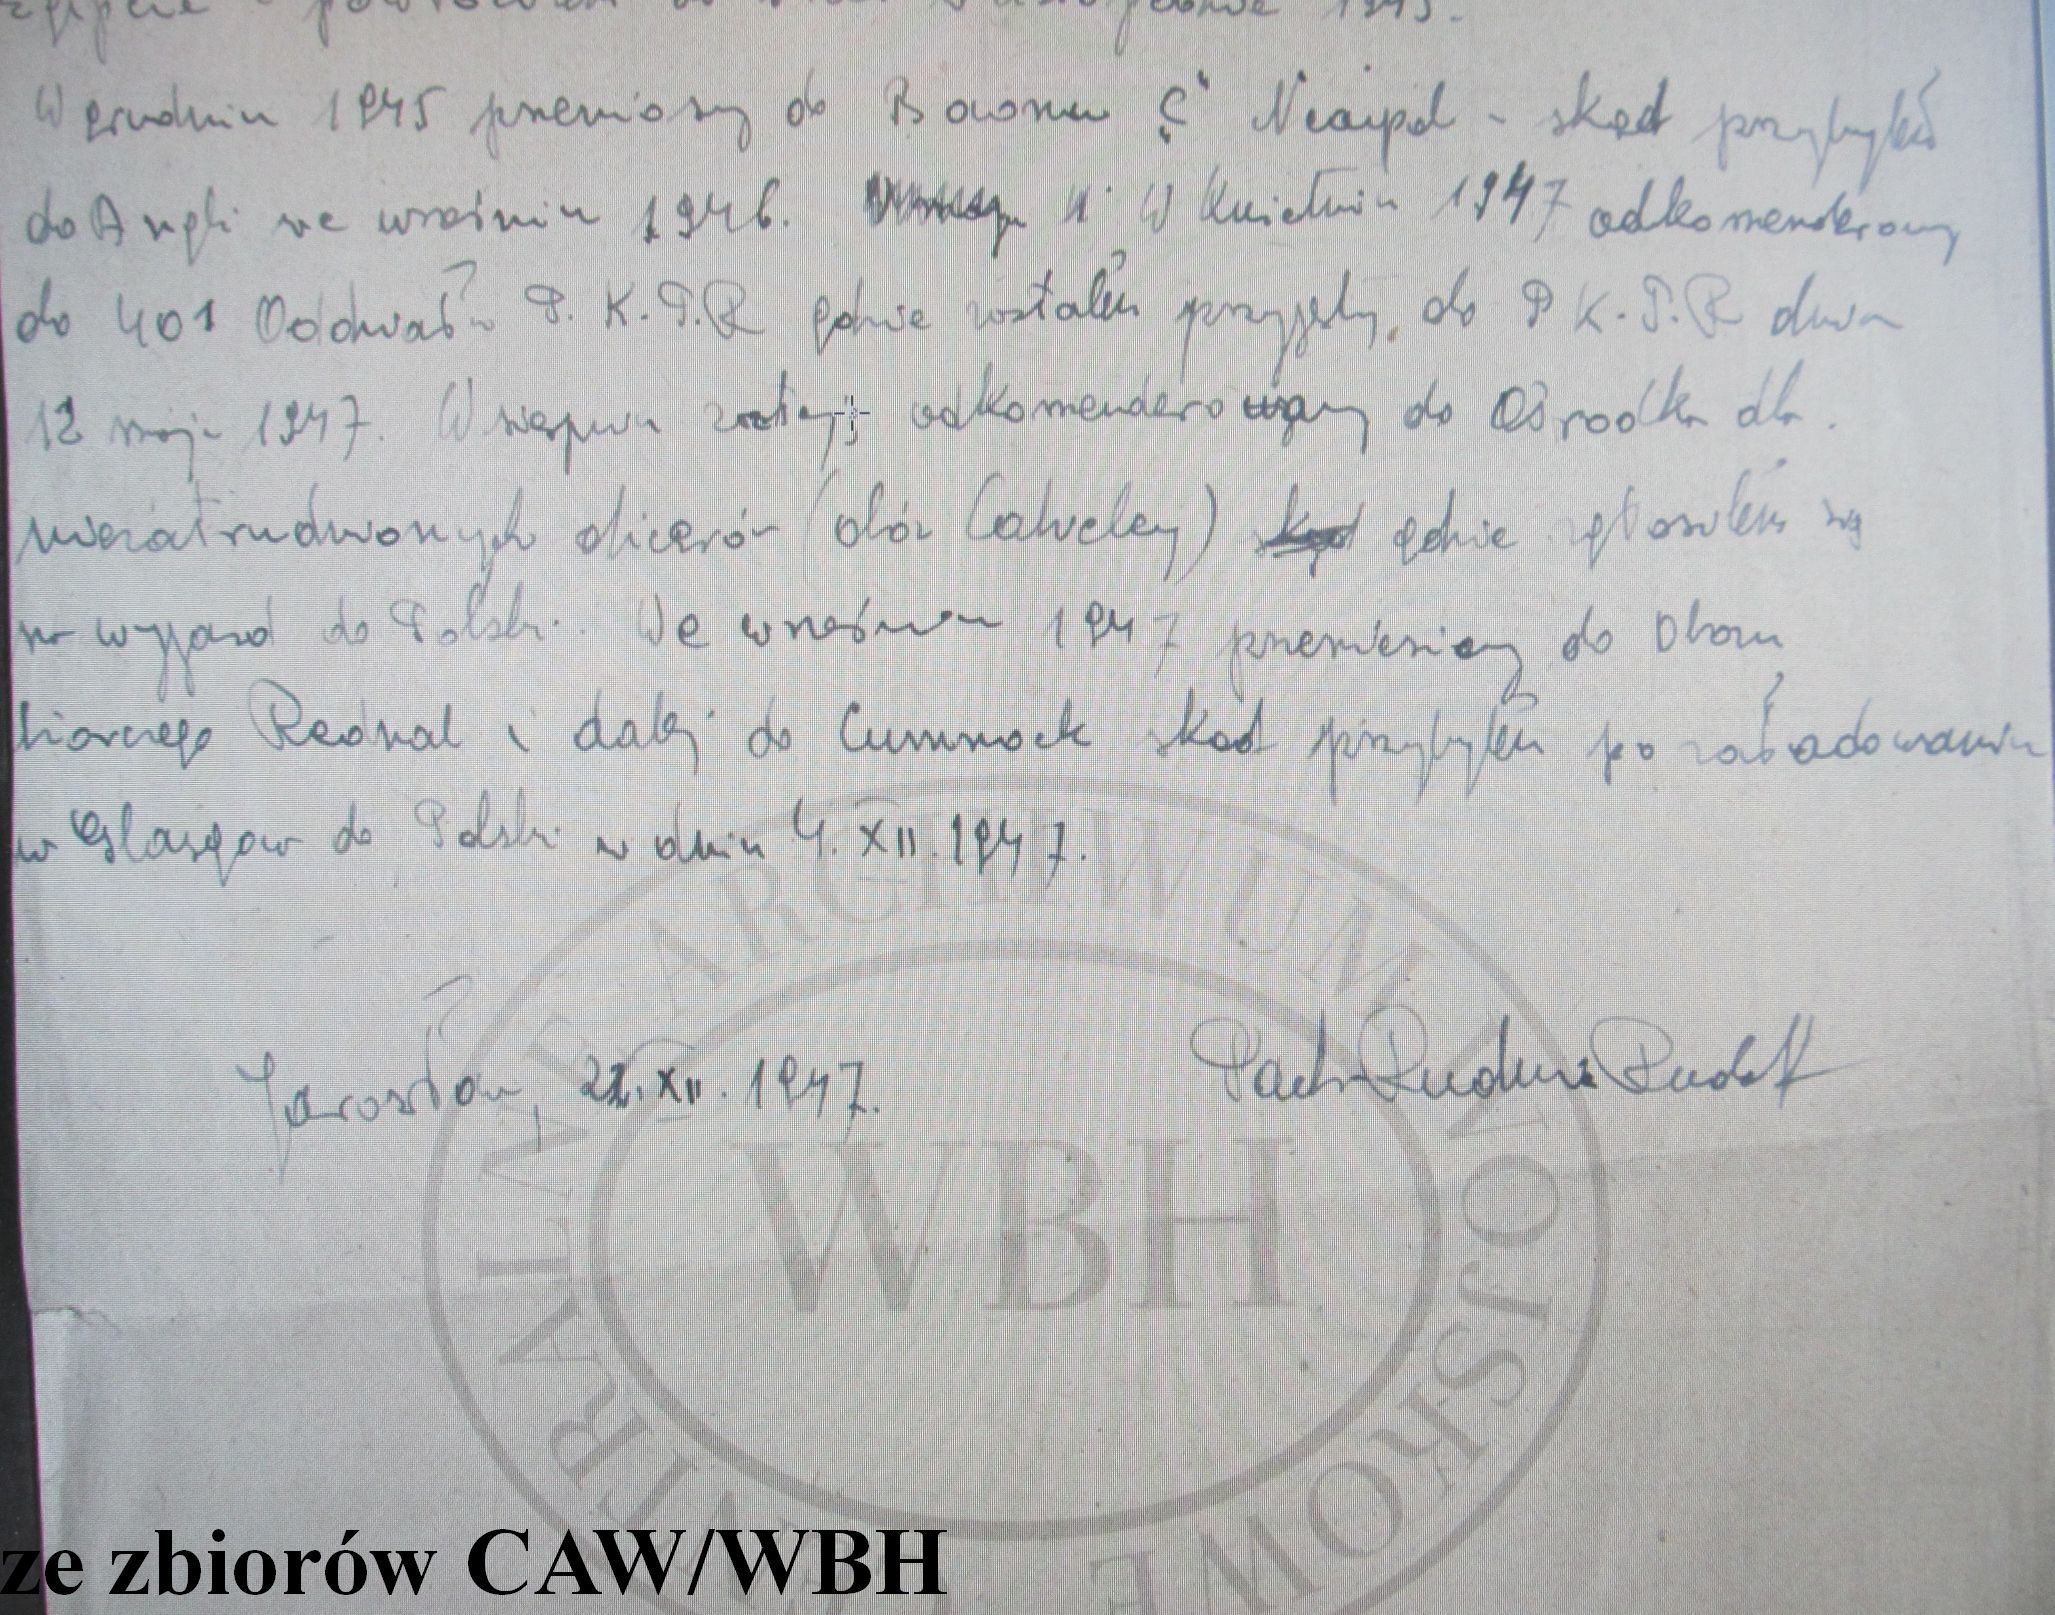 1945.
W grudniu 1945 przeniesiony do Baronu Ś Neapol - skąd przybyłem
do Anglii we wrześniu 1946. W kwietniu 1947 odkomenderowany
do 401 Oddziału P.K.P.R gdzie zostałem przyjęty do P.K.P.R dnia
12 maja 1947. W sierpniu odkomenderowany do Ośrodka dla
niezatrudnionych oficerów (obóz Calveley) gdzie zgłosiłem się
na wyjazd do Polski. We wrześniu 1947 przeniesiony do obozu
zbiorczego Rednal i dalej do Cumnock skąd przybyłem po załadowaniu
w Glasgow do Polski w dniu 4.XII.1947.
Jarosław, 22.XII.1947. Rudolf
ARCHIWUM WOJSKOWE
WBH
ze zbiorów CAW/WBH